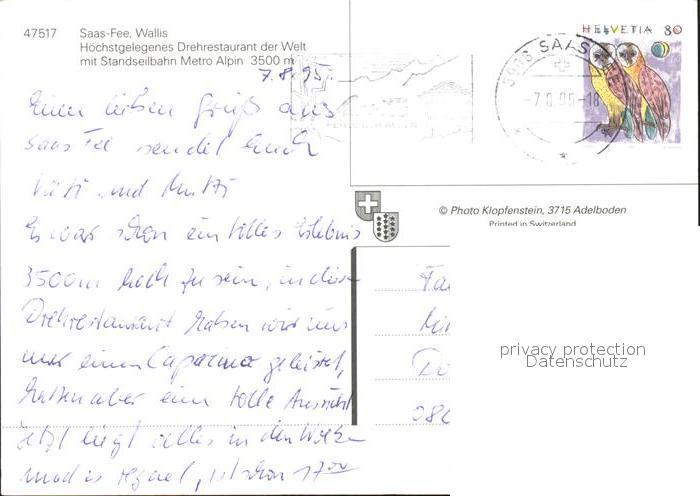 47517 Saas-Fee, Wallis
Höchstgelegenes Drehrestaurant der Welt
mit Standseilbahn Metro Alpin 3500 m
7.8.95.
HELVETIA 80
3906 SAAS
-7.8.95-18
Einen lieben Gruß aus
Saas Fee sendet Euch
Vati und Mutti
Es war schon ein tolles Erlebnis
3500m hoch zu sein, in diesem
Drehrestaurant haben wir uns
nur einen Capocino geleistet,
hatten aber eine tolle Aussicht
Jetzt liegt alles in den Wolken
und es regnet, ist schon 17 00
© Photo Klopfenstein, 3715 Adelboden
Printed in Switzerland
privacy protection
Datenschutz